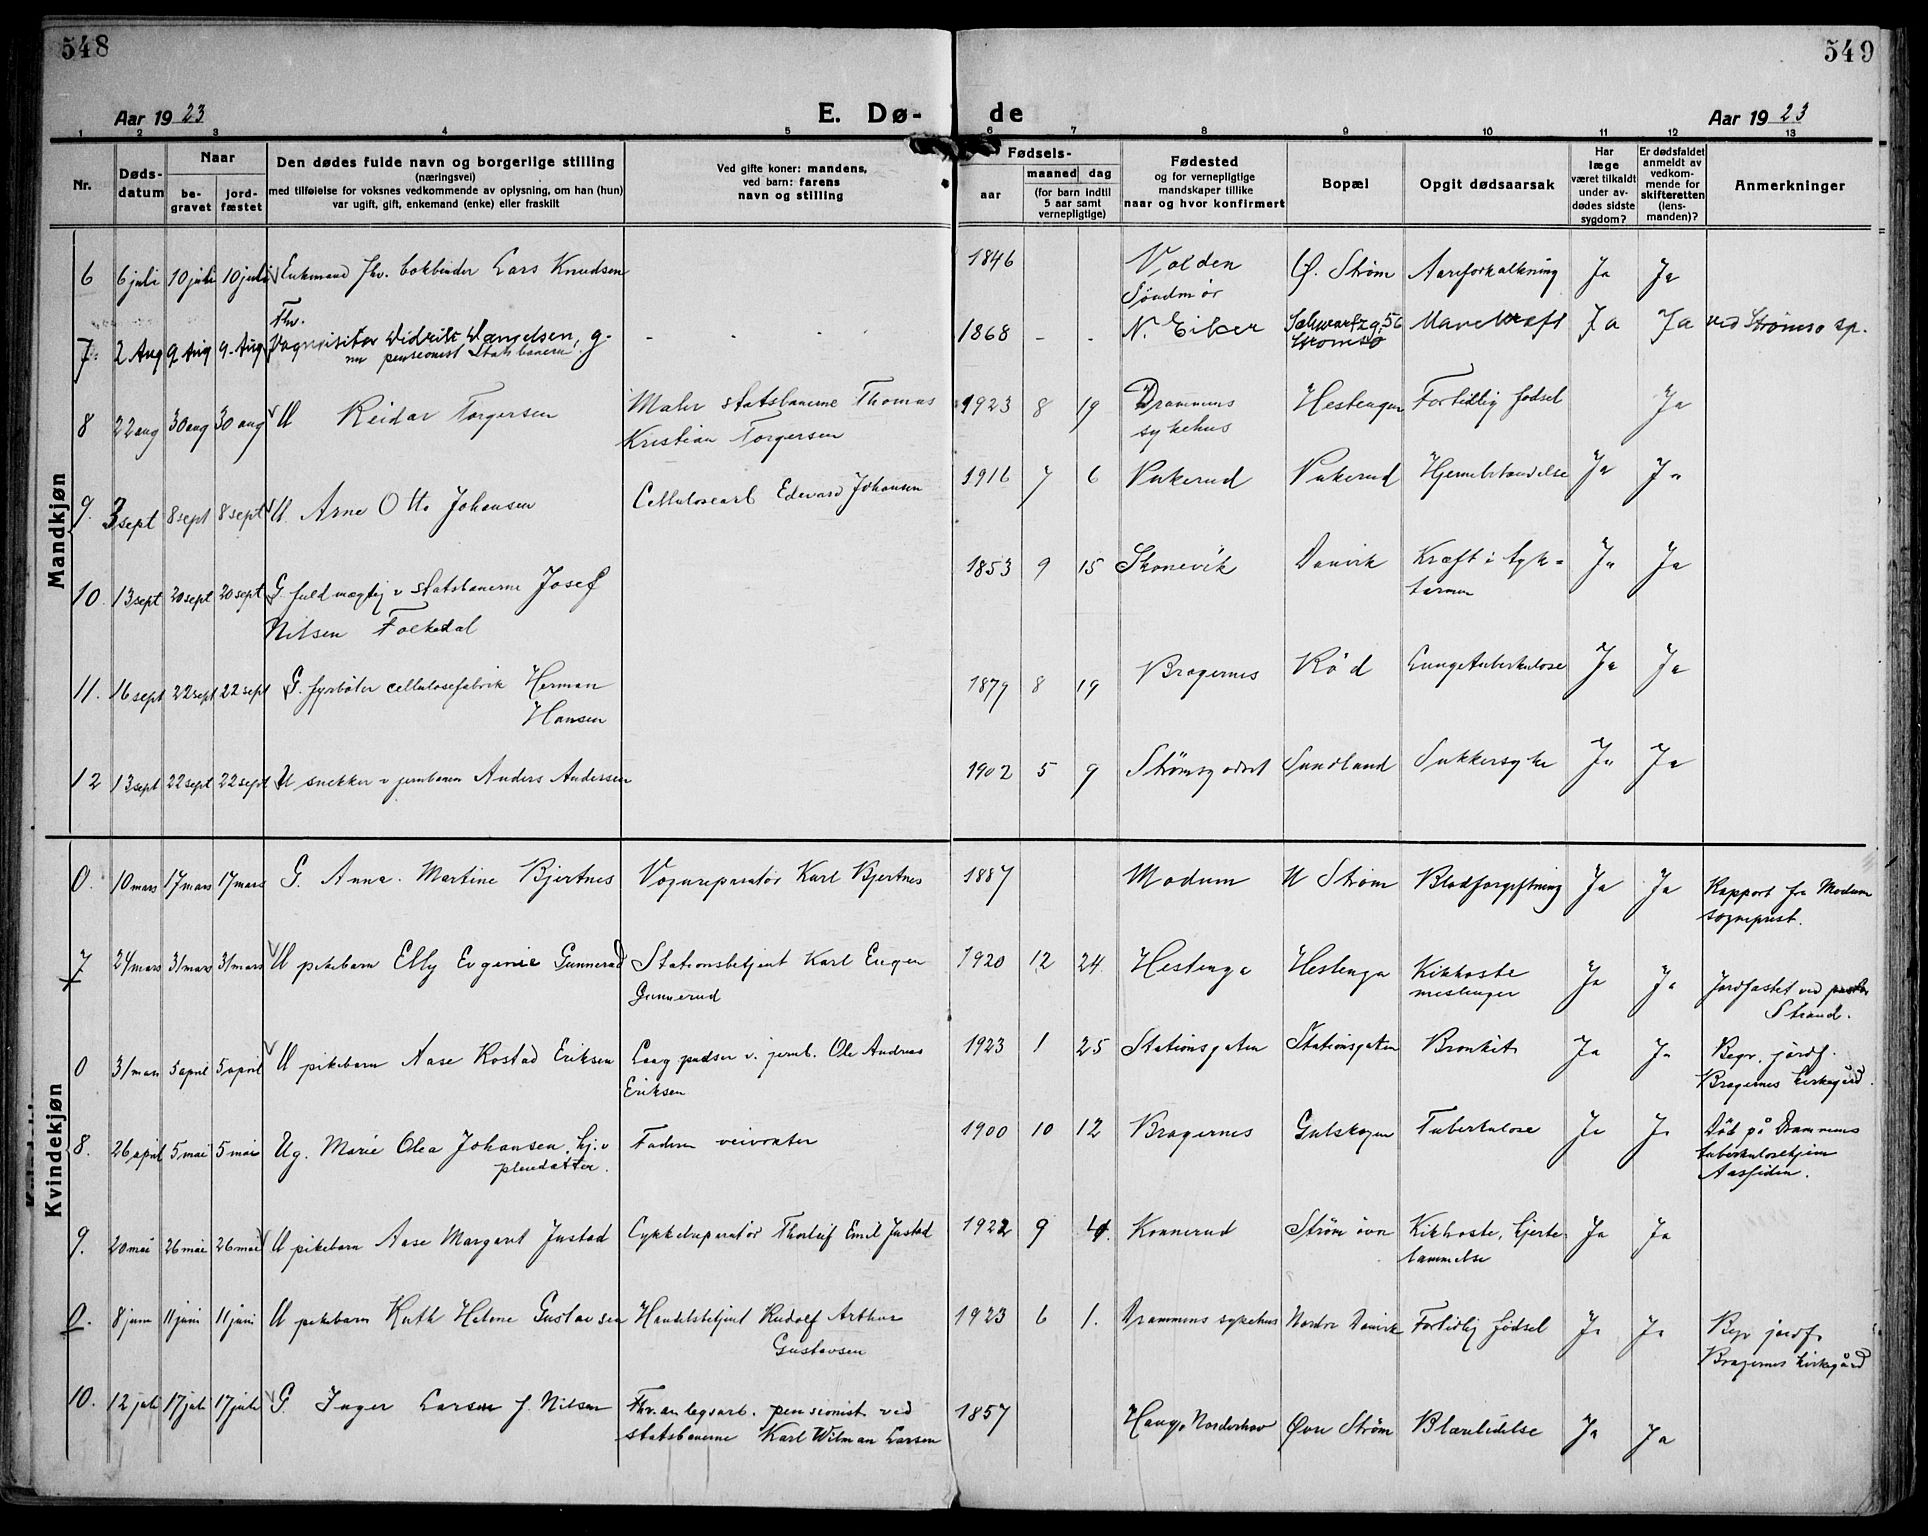 548
549
Aar 1923
E. Dø-
de
Aar 1923
1 2 3 4 5 6 7 8 9 10 11 12 13
Nr.
Døds-
datum
Naar
be-
gravet
jord-
fæstet
Den dødes fulde navn og borgerlige stilling
(næringsvei)
med tilføielse for voksnes vedkommende av oplysning, om han (hun)
var ugift, gift, enkemand (enke) eller fraskilt
Ved gifte koner: mandens,
ved barn: farens
navn og stilling
Fødsels-
aar
maaned dag
(for barn indtil
5 aar samt
vernepligtige)
Fødested
og for vernepligtige
mandskaper tillike
naar og hvor konfirmert
Bopæl
Opgit dødsaarsak
Har
læge
været tilkaldt
under av-
dødes sidste
sygdom?
Er dødsfaldet
anmeldt av
vedkom-
mende for
skifteretten
(lens-
manden)?
Anmerkninger
Mandkjøn
6 6 juli 10 juli 10 juli Enkemand fhv. bokbinder Lars Knudsen 1846 Volden Ø. Strøm Aareforkalkning Ja Ja
Søndmør
Fhv.
7. 2 Aug 9 Aug 9. Aug Vognvisitør Didrik Wangelsen, g. - - 1868 - - N. Eiker Schwartzg. 56 Mavekræft Ja Ja ved Strømsø sp.
nu pensionist Statsbanerne Strømsø
8 22 aug 30 aug 30 aug U Reidar Torgersen Maler statsbanerne Thomas 1923 8 19 Drammens Hestengen Fortidlig fødsel Ja
Kristian Torgersen sykehus
9. 3 sept 8 sept 8 sept U. Arne Otto Johansen Cellulosearb. Edevard Johansen 1916 7 6 Vakerud Vakerud Hjernebetændelse Ja Ja
10. 13 sept 20 sept 20 sept G. fuldmægtig v statsbanerne Josef 1853 9 15 Skonevik Danvik Kræft i tyk- Ja Ja
Nilsen Folkedal tarmen
11. 16 sept 22 sept 22 sept G. fyrbøter cellulosefabrik Herman 1879 8 19 Bragernes Rød Lungetuberkulose Ja Ja
Hansen
12 13 sept 22 sept 22 sept U snekker v jernbanen Anders Andersen 1902 5 9 Strømsgodset Sundland Sukkersyke Ja Ja
Kvindekjøn
0. 10 mars 17 mars 17 mars G. Anna Martine Bjertnes Vognreparatør Karl Bjertnes 1887 Modum N Strøm Blodforgiftning Ja Ja Rapport fra Modum
sogneprest.
7 24 mars 31 mars 31 mars U pikebarn Elly Evgenie Gunnerud Stationsbetjent Karl Eugen 1920 12 24 Hestenga Hestenga Kikhoste Ja Ja Jordfæstet ved
Gunnerud meslinger Strand.
0 31 mars 5 april 5 april U pikebarn Aase Rostad Eriksen Vogpudser v. jernb. Ole Andreas 1923 1 25 Stationsgaten Stationsgaten Bronkit Ja Ja Begr. jordf.
Eriksen Bragernes kirkegård.
8. 26 april 5 mai 5 mai Ug. Marie Olea Johansen, hj.v Faderen veivokter 1900 10 12 Bragernes Gulskogen Tuberkulose Ja Ja Død på Drammens
pleiedatter. tuberkulosehjem
Aassiden.
9. 20 mai 26 mai 26 mai U pikebarn Aase Margaret Justad Cykkelreparatør Thorleif Emil Justad 1922 9 4. Konnerud Strøm øvre Kikhoste, hjerte Ja Ja
lammelse
0. 8 juni 11 juni 11 juni U pikebarn Ruth Helene Gustavsen Handelsbetjent Rudolf Arthur 1923 6 1. Drammens sykehus Nordre Danvik Fortidlig fødsel Ja Ja Begr jordf
Gustavsen Bragernes kirkegård
10. 12 juli 17 juli 17 juli G. Inger Larsen f. Nilsen Fhv. anlegsarb. pensionist ved 1857 Haug, Norderhov Øvre Strøm Blærelidelse Ja Ja
statsbanerne Karl Wilman Larsen